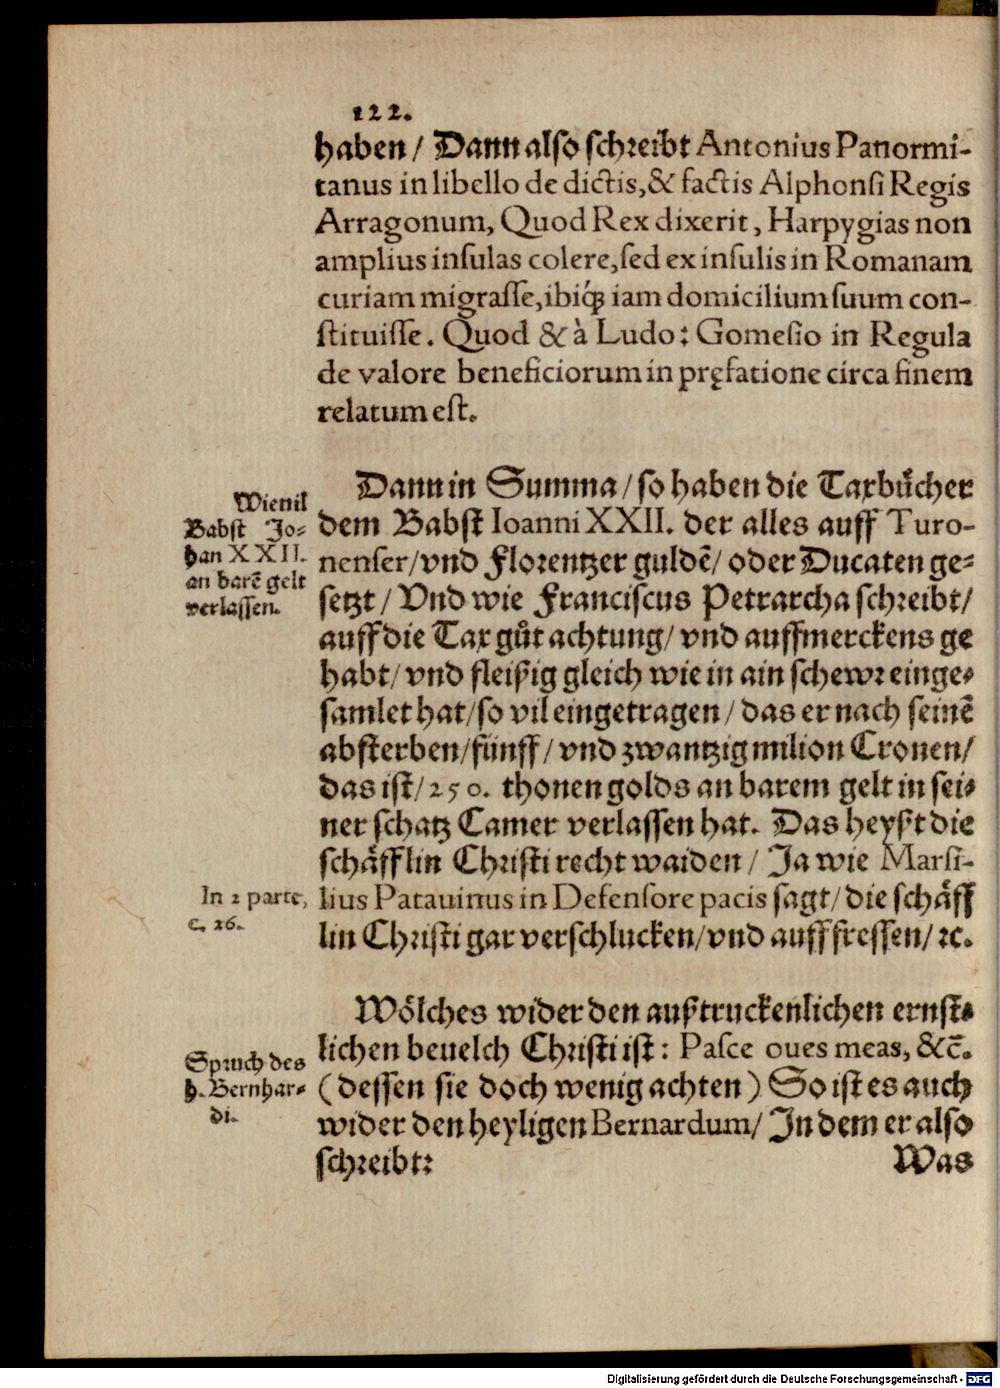 122.
haben/ Dann also schreibt Antonius Panormi-
tanus in libello de dictis, & factis Alphonsi Regis
Arragonum, Quod Rex dixerit, Harpygias non
amplius insulas colere, sed ex insulis in Romanam
curiam migrasse, ibiq́ꝫ iam domicilium suum con-
stituisse. Quod & à Ludo: Gomesio in Regula
de valore beneficiorum in pręfatione circa finem
relatum est.
Dann in Summa/ so haben die Taxbücher
dem Babst Ioanni XXII. der alles auff Turo-
nenser/ vnd Florentzer guldē/ oder Ducaten ge-
setzt/ Vnd wie Franciscus Petrarcha schreibt/
auff die Tax gůt achtung/ vnd auffmerckens ge
habt/ vnd fleißig gleich wie in ain schewr einge-
samlet hat/ so vil eingetragen/ das er nach seinē
absterben/ fünff/ vnd zwantzig milion Cronen/
das ist/ 250. thonen golds an barem gelt in sei-
ner schatz Camer verlassen hat. Das heyßt die
schäfflin Christi recht waiden/ Ja wie Marsi-
lius Patauinus in Defensore pacis sagt/ die schäff
lin Christi gar verschlucken/ vnd auff fressen/ ꝛc.
Wölches wider den außtruckenlichen ernst-
lichen beuelch Christi ist: Pasce oues meas, &c̄.
(dessen sie doch wenig achten) So ist es auch
wider den heyligen Bernardum/ In dem er also
schreibt:
Was
Wieuil
Babst Jo-
han XXII.
an barē gelt
verlassen.
In 2 parte,
c. 26.
Spruch des
h. Bernhar-
di.
Digitalisierung gefördert durch die Deutsche Forschungsgemeinschaft - DFG